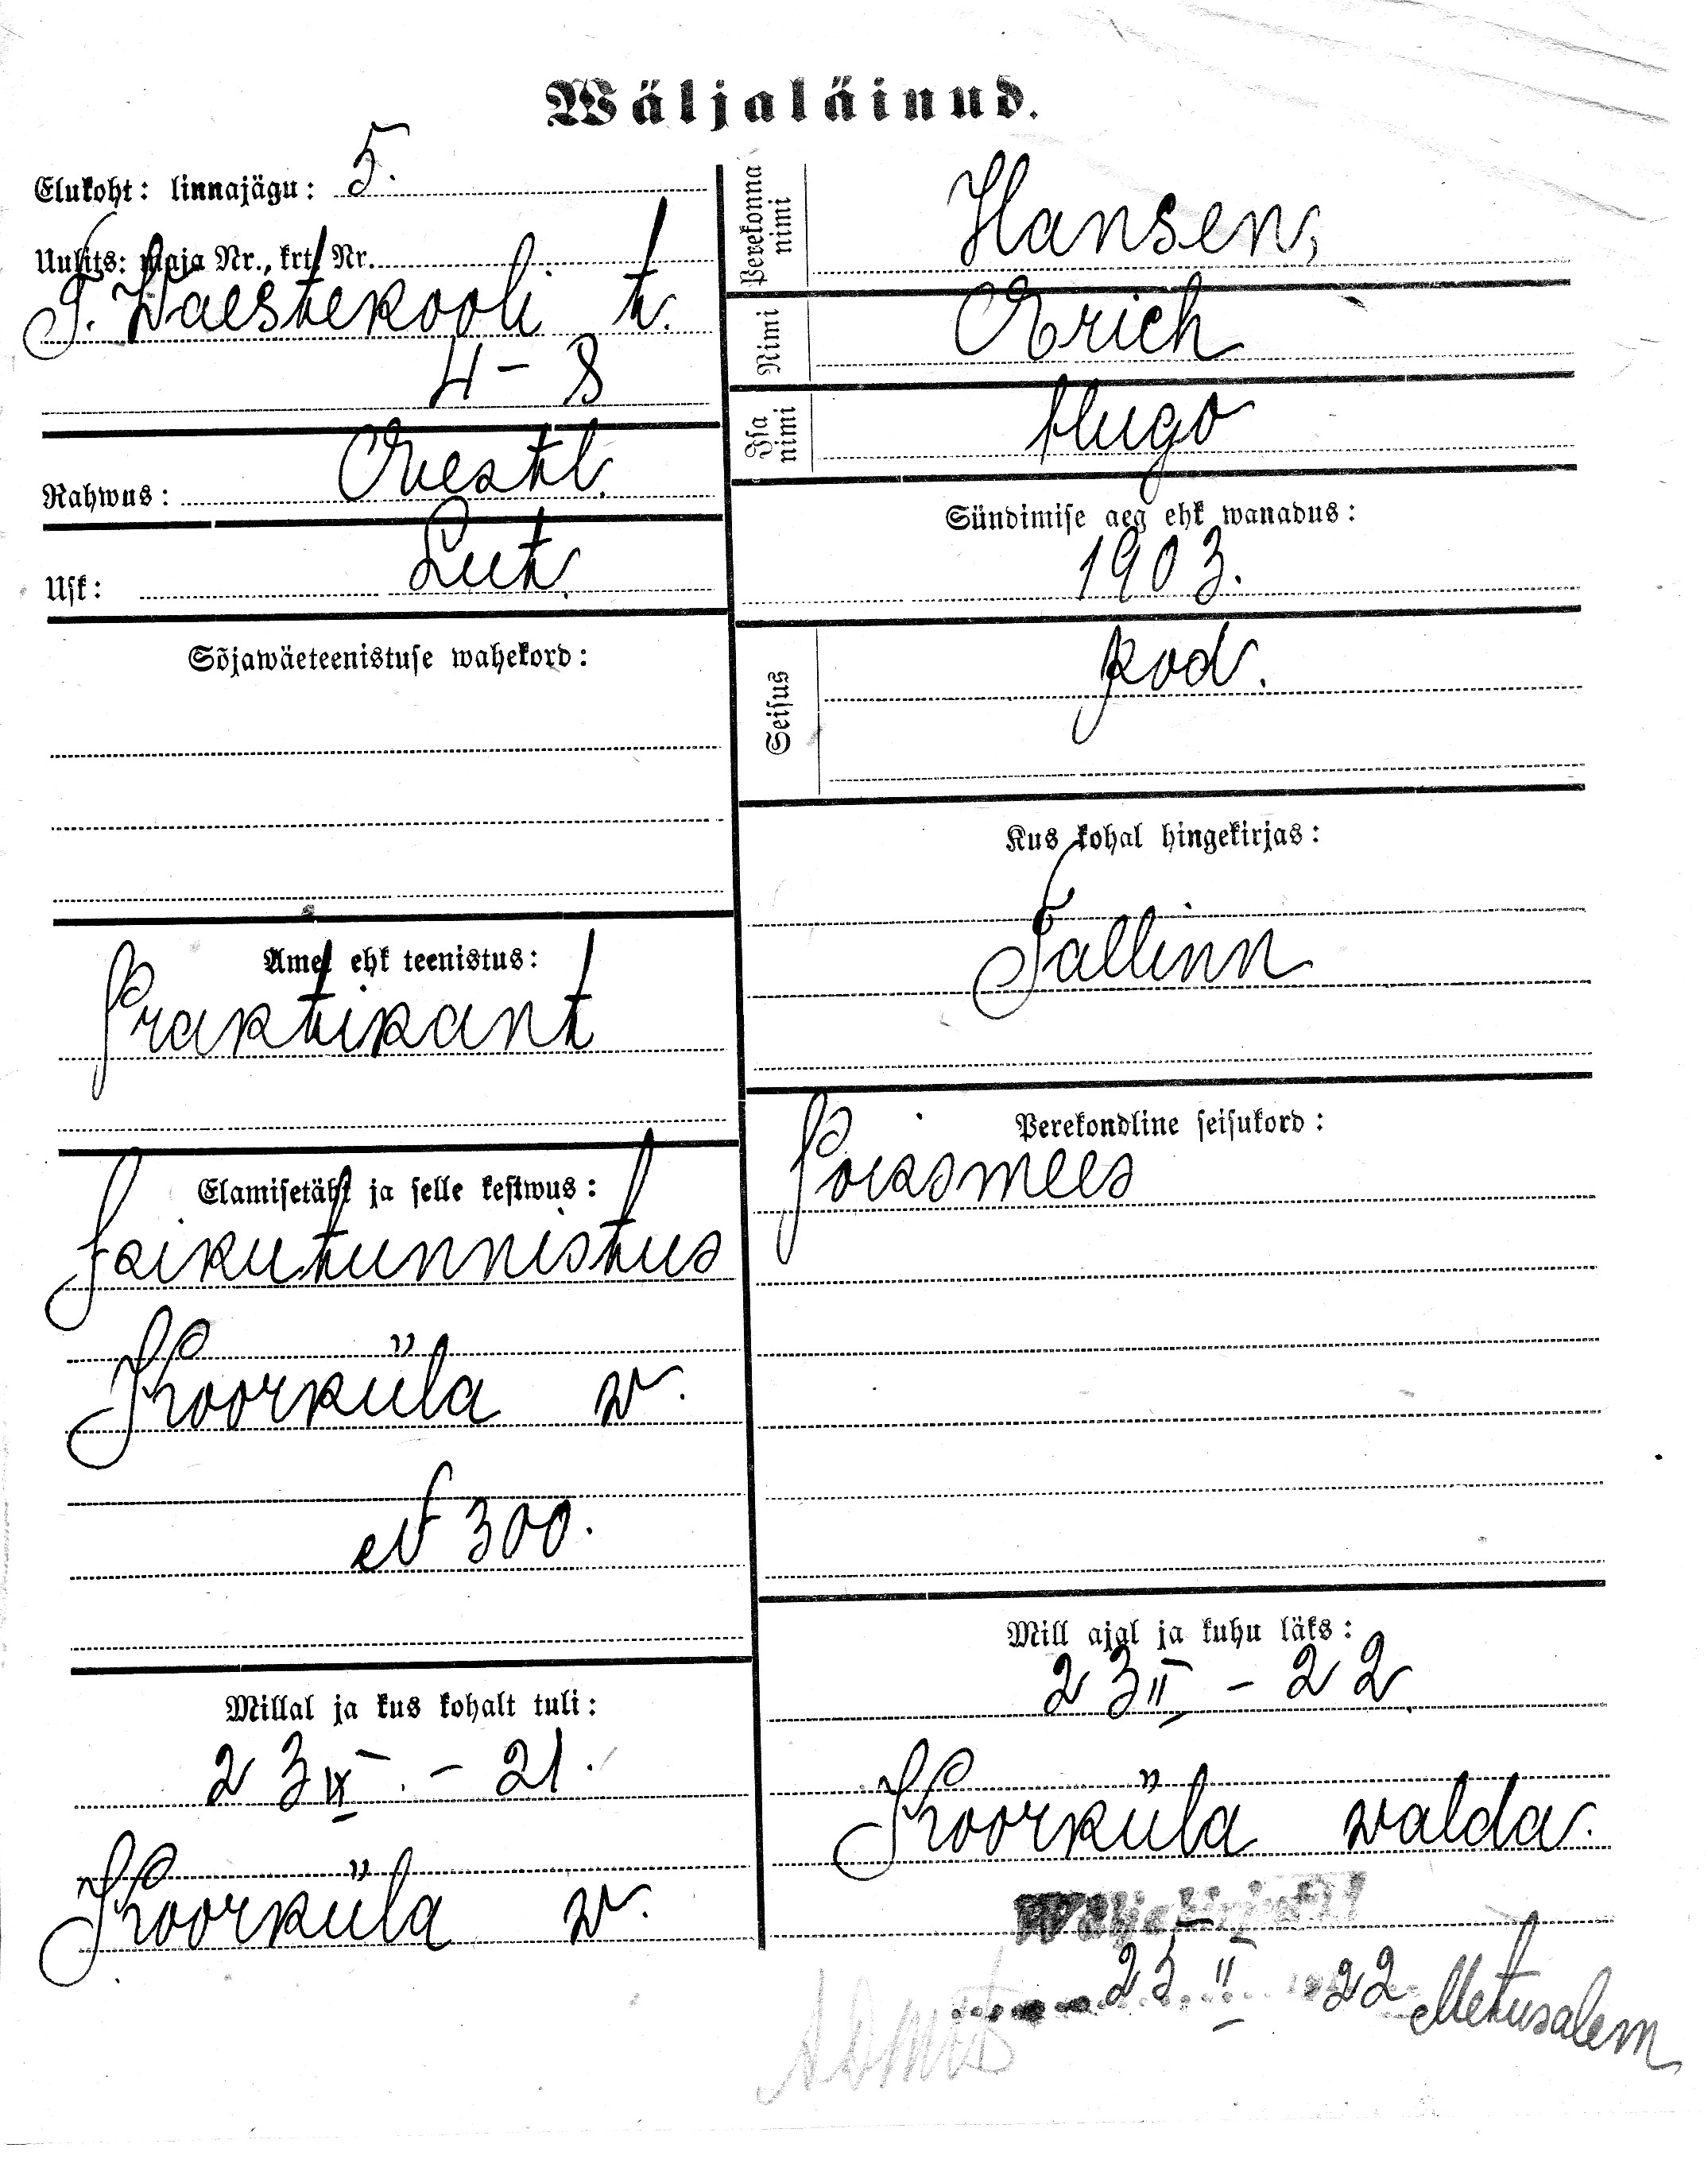 Wäljaläinud.
Elukoht: linnajägu: 5.
Uulits: maja Nr., krt. Nr.
T. Waestekooli t.
4 - 8
Rahwus: Eestl.
Usk: Lut.
Sõjawäeteenistuse wahekord:
Amet ehk teenistus:
Praktikant
Elamisetäht ja selle kestwus:
Isikutunnistus
Koorküla w.
№ 300.
Millal ja kus kohalt tuli:
23 IX. - 21.
Koorküla w.
Perekonna nimi Hansen,
Nimi Erich
Isa nimi Hugo
Sündimise aeg ehk wanadus:
1903.
Seisus kod.
Kus kohal hingekirjas:
Tallinn
Perekondline seisukord:
Poissmees
Mill ajal ja kuhu läks:
23 II - 22
Koorküla walda.
23 II 22 Metusalem